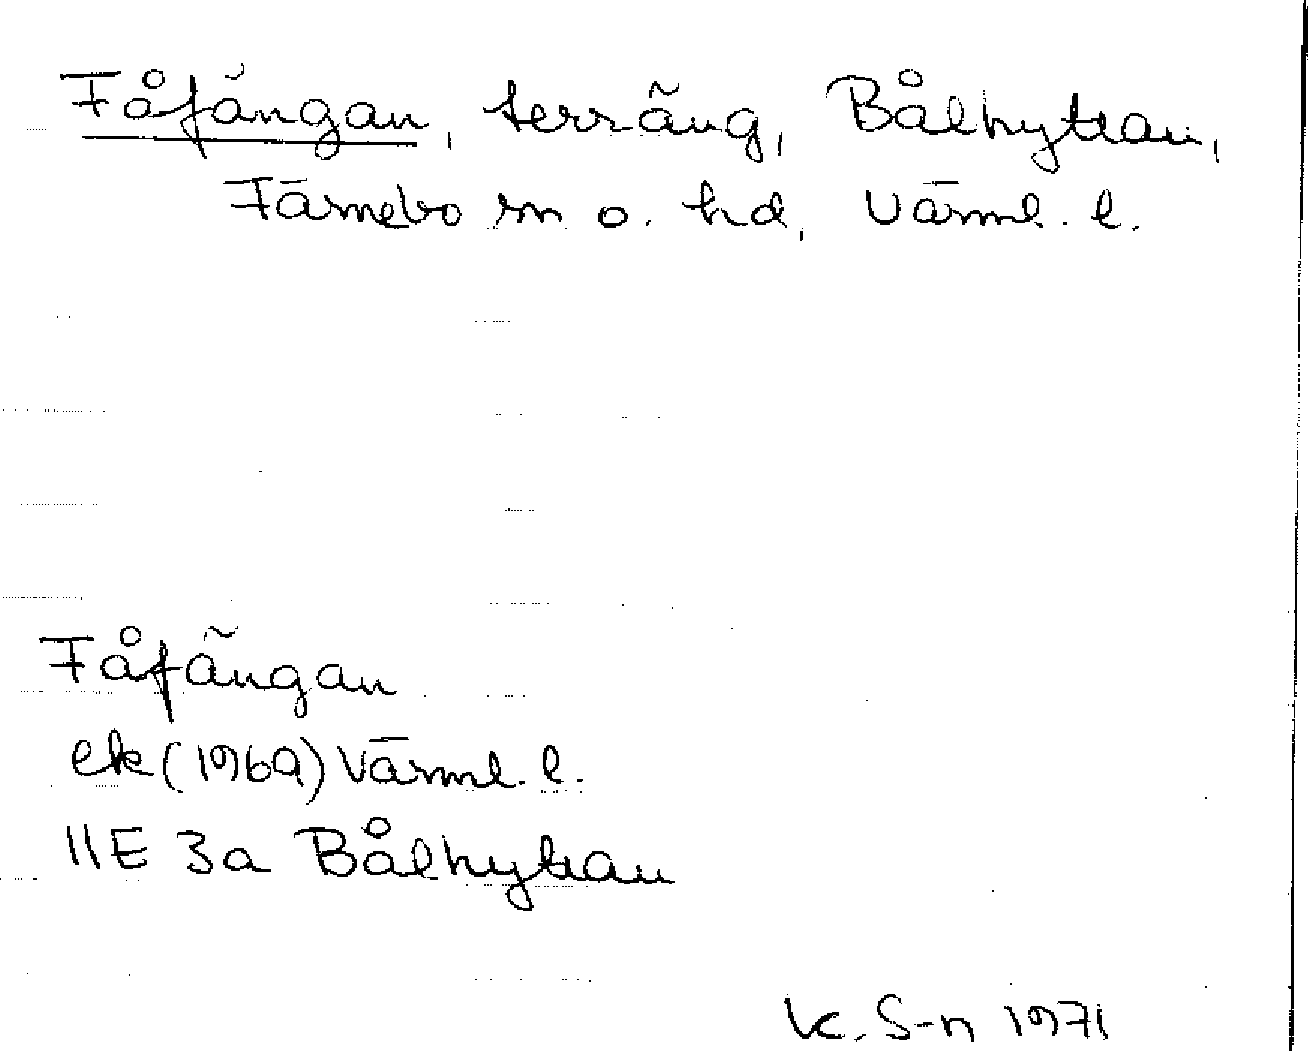 Fåfängan, terräng, Bålhyttan,
Färnebo sn o. hd, Värml. l.
Fåfängan
ek (1969) Värml. l.
11E 3a Bålhyttan
K. S-n 1971